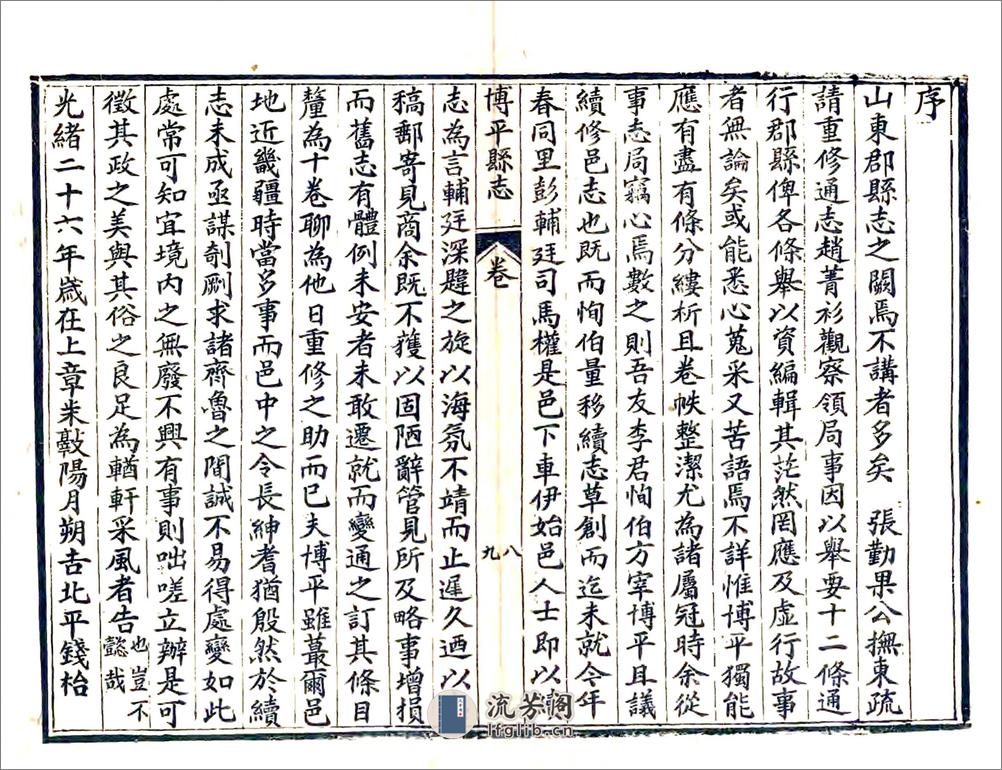 序
山東郡縣志之闕焉不講者多矣　張勤果公撫東疏
請重修通志趙菁衫觀察領局事因以舉要十二條通
行郡縣俾各條舉以資編輯其茫然罔應及虛行故事
者無論矣或能悉心蒐采又苦語焉不詳惟博平獨能
應有盡有條分縷析且卷帙整潔尤為諸屬冠時余從
事志局竊心焉數之則吾友李君恂伯方宰博平且議
續修邑志也既而恂伯量移續志草創而迄未就今年
春同里彭輔廷司馬權是邑下車伊始邑人士即以
博平縣志
卷
八
九
志為言輔廷深韙之旋以海氛不靖而止遲久迺以
稿郵寄見商余既不獲以固陋辭管見所及略事增損
而舊志有體例未安者未敢遷就而變通之訂其條目
釐為十卷聊為他日重修之助而已夫博平雖蕞爾邑
地近畿疆時當多事而邑中之令長紳耆猶殷然於續
志未成亟謀剞劂求諸齊魯之間誠不易得處變如此
處常可知宜境內之無廢不興有事則咄嗟立辦是可
徵其政之美與其俗之良足為輶軒采風者告也豈不懿哉
光緒二十六年歲在上章困敦陽月朔吉北平錢枱
流芳閣
lfglib.cn